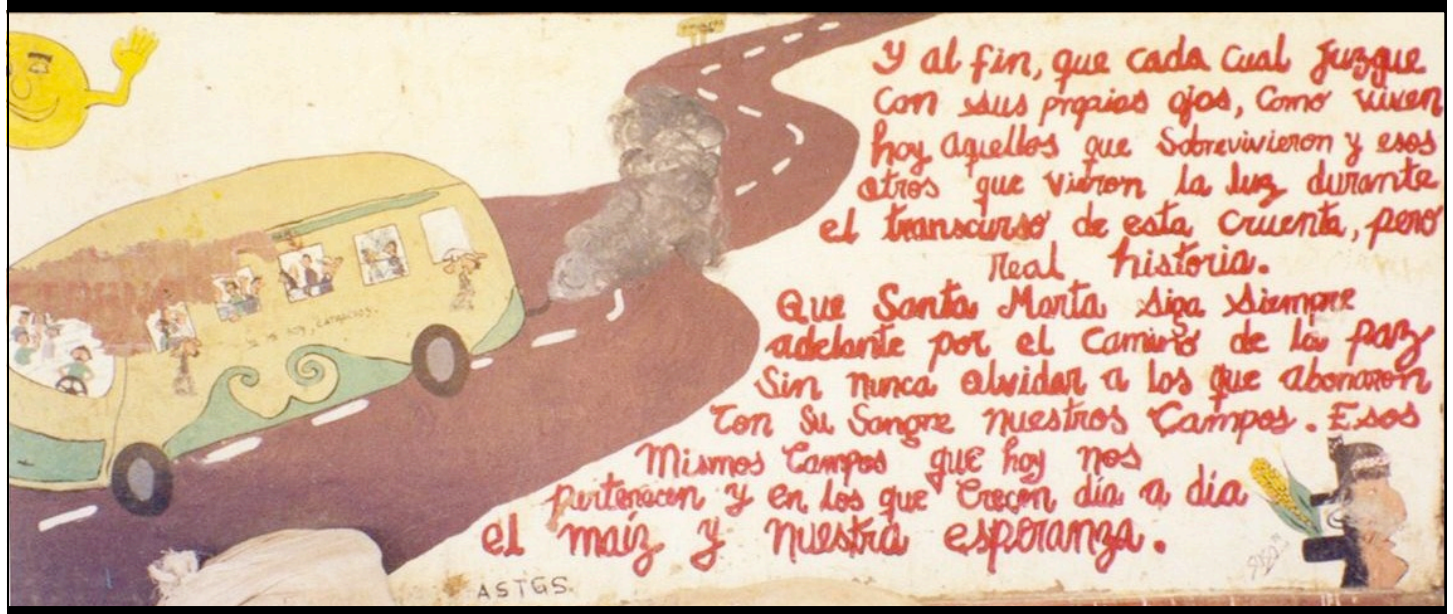 Y al fin, que cada cual juzgue
con sus propios ojos, como viven
hoy aquellos que sobrevivieron y esos
otros que vieron la luz durante
el transcurso de esta cruenta, pero
real historia.
Que Santa Marta siga siempre
adelante por el camino de la paz
sin nunca olvidar a los que abonaron
con su sangre nuestros campos. Esos
mismos campos que hoy nos
pertenecen y en los que crecen día a día
el maíz y nuestra esperanza.
ASTGS.